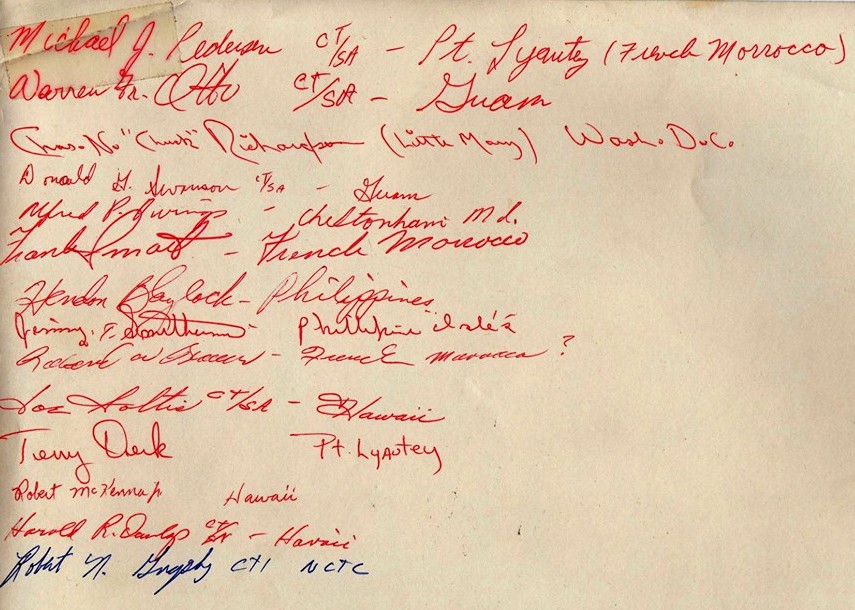 Michael J. Pederson CT/SA - Pt. Lyautey (French Morrocco)
Warren Otto CT/SA - Guam
Chas. "Chuck" Richardson (Little Mary) Wash. D.C.
Donald G. Swanson CT/SA - Guam
Alfred P. Owings - Cheltonham Md.
Frank Smart - French Morrocco
Hendon Blaylock - Philippines
Jimmy T. - Phillipine Isle's
Robert - French Morocco ?
Joe Soltis CT/SA - Hawaii
Terry Derk Pt. Lyautey
Robert McKenna Jr Hawaii
Harold R. Dunlap - Hawaii
Robert N. CT1 NCTC